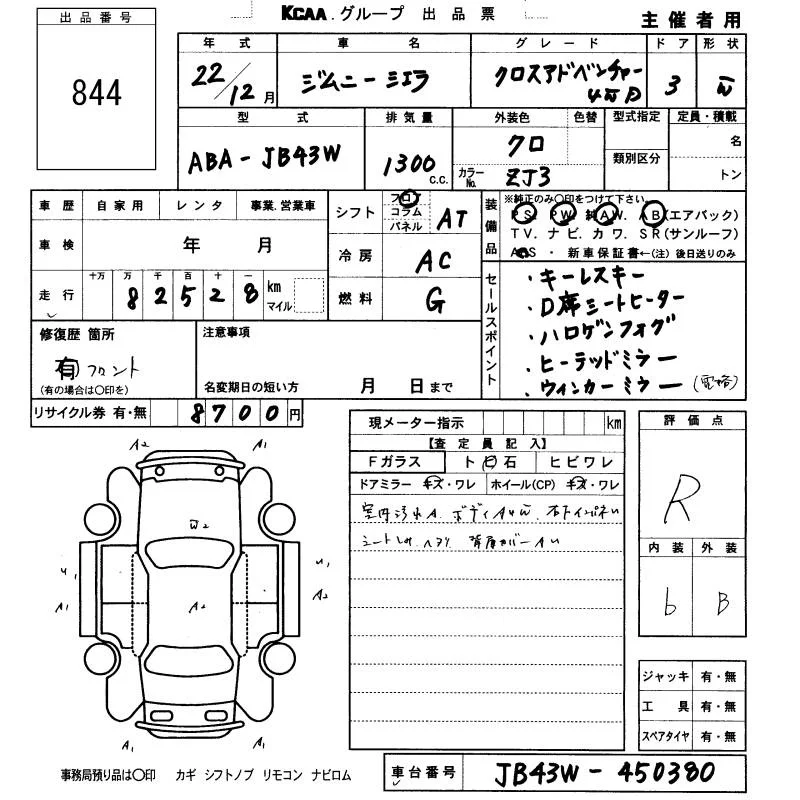 KCAA.グループ 出品票
主催者用
出品番号
844
年式 車名 グレード ドア 形状
22/12月 ジムニーシエラ クロスアドベンチャー 4WD 3 W
型式 排気量 外装色 色替 型式指定 定員・積載
ABA-JB43W 1300 C.C. クロ 名
カラーNo. ZJ3 類別区分 トン
車歴 自家用 レンタ 事業.営業車
シフト フロア コラム パネル AT
装備品 ※純正のみ〇印をつけて下さい。
PS PW 純AW. AB(エアバック)
TV.ナビ.カワ.SR(サンルーフ)
A S・新車保証書←(注)後日送りのみ
車検 年 月
冷房 AC
走行 十万 万 千 百 十 一
82528 km マイル
燃料 G
セールスポイント
・キーレスキー
・D席シートヒーター
・ハロゲンフォグ
・ヒーテッドミラー
・ウィンカーミラー(電格)
修復歴 箇所
有 フロント
(有の場合は〇印を)
注意事項
名変期日の短い方 月 日まで
リサイクル券 有・無 8700円
現メーター指示 km
【査定員記入】
Fガラス ト 石 ヒビワレ
ドアミラー キズ・ワレ ホイール(CP) キズ・ワレ
室内汚れA. ボディAUW.
評価点
R
内装 外装
b B
A2 A1
W2
U1 U1
A1 A2 A2
A1 A1
ジャッキ 有・無
工具 有・無
スペアタイヤ 有・無
事務局預り品は〇印 カギ シフトノブ リモコン ナビロム
車台番号 JB43W-450380